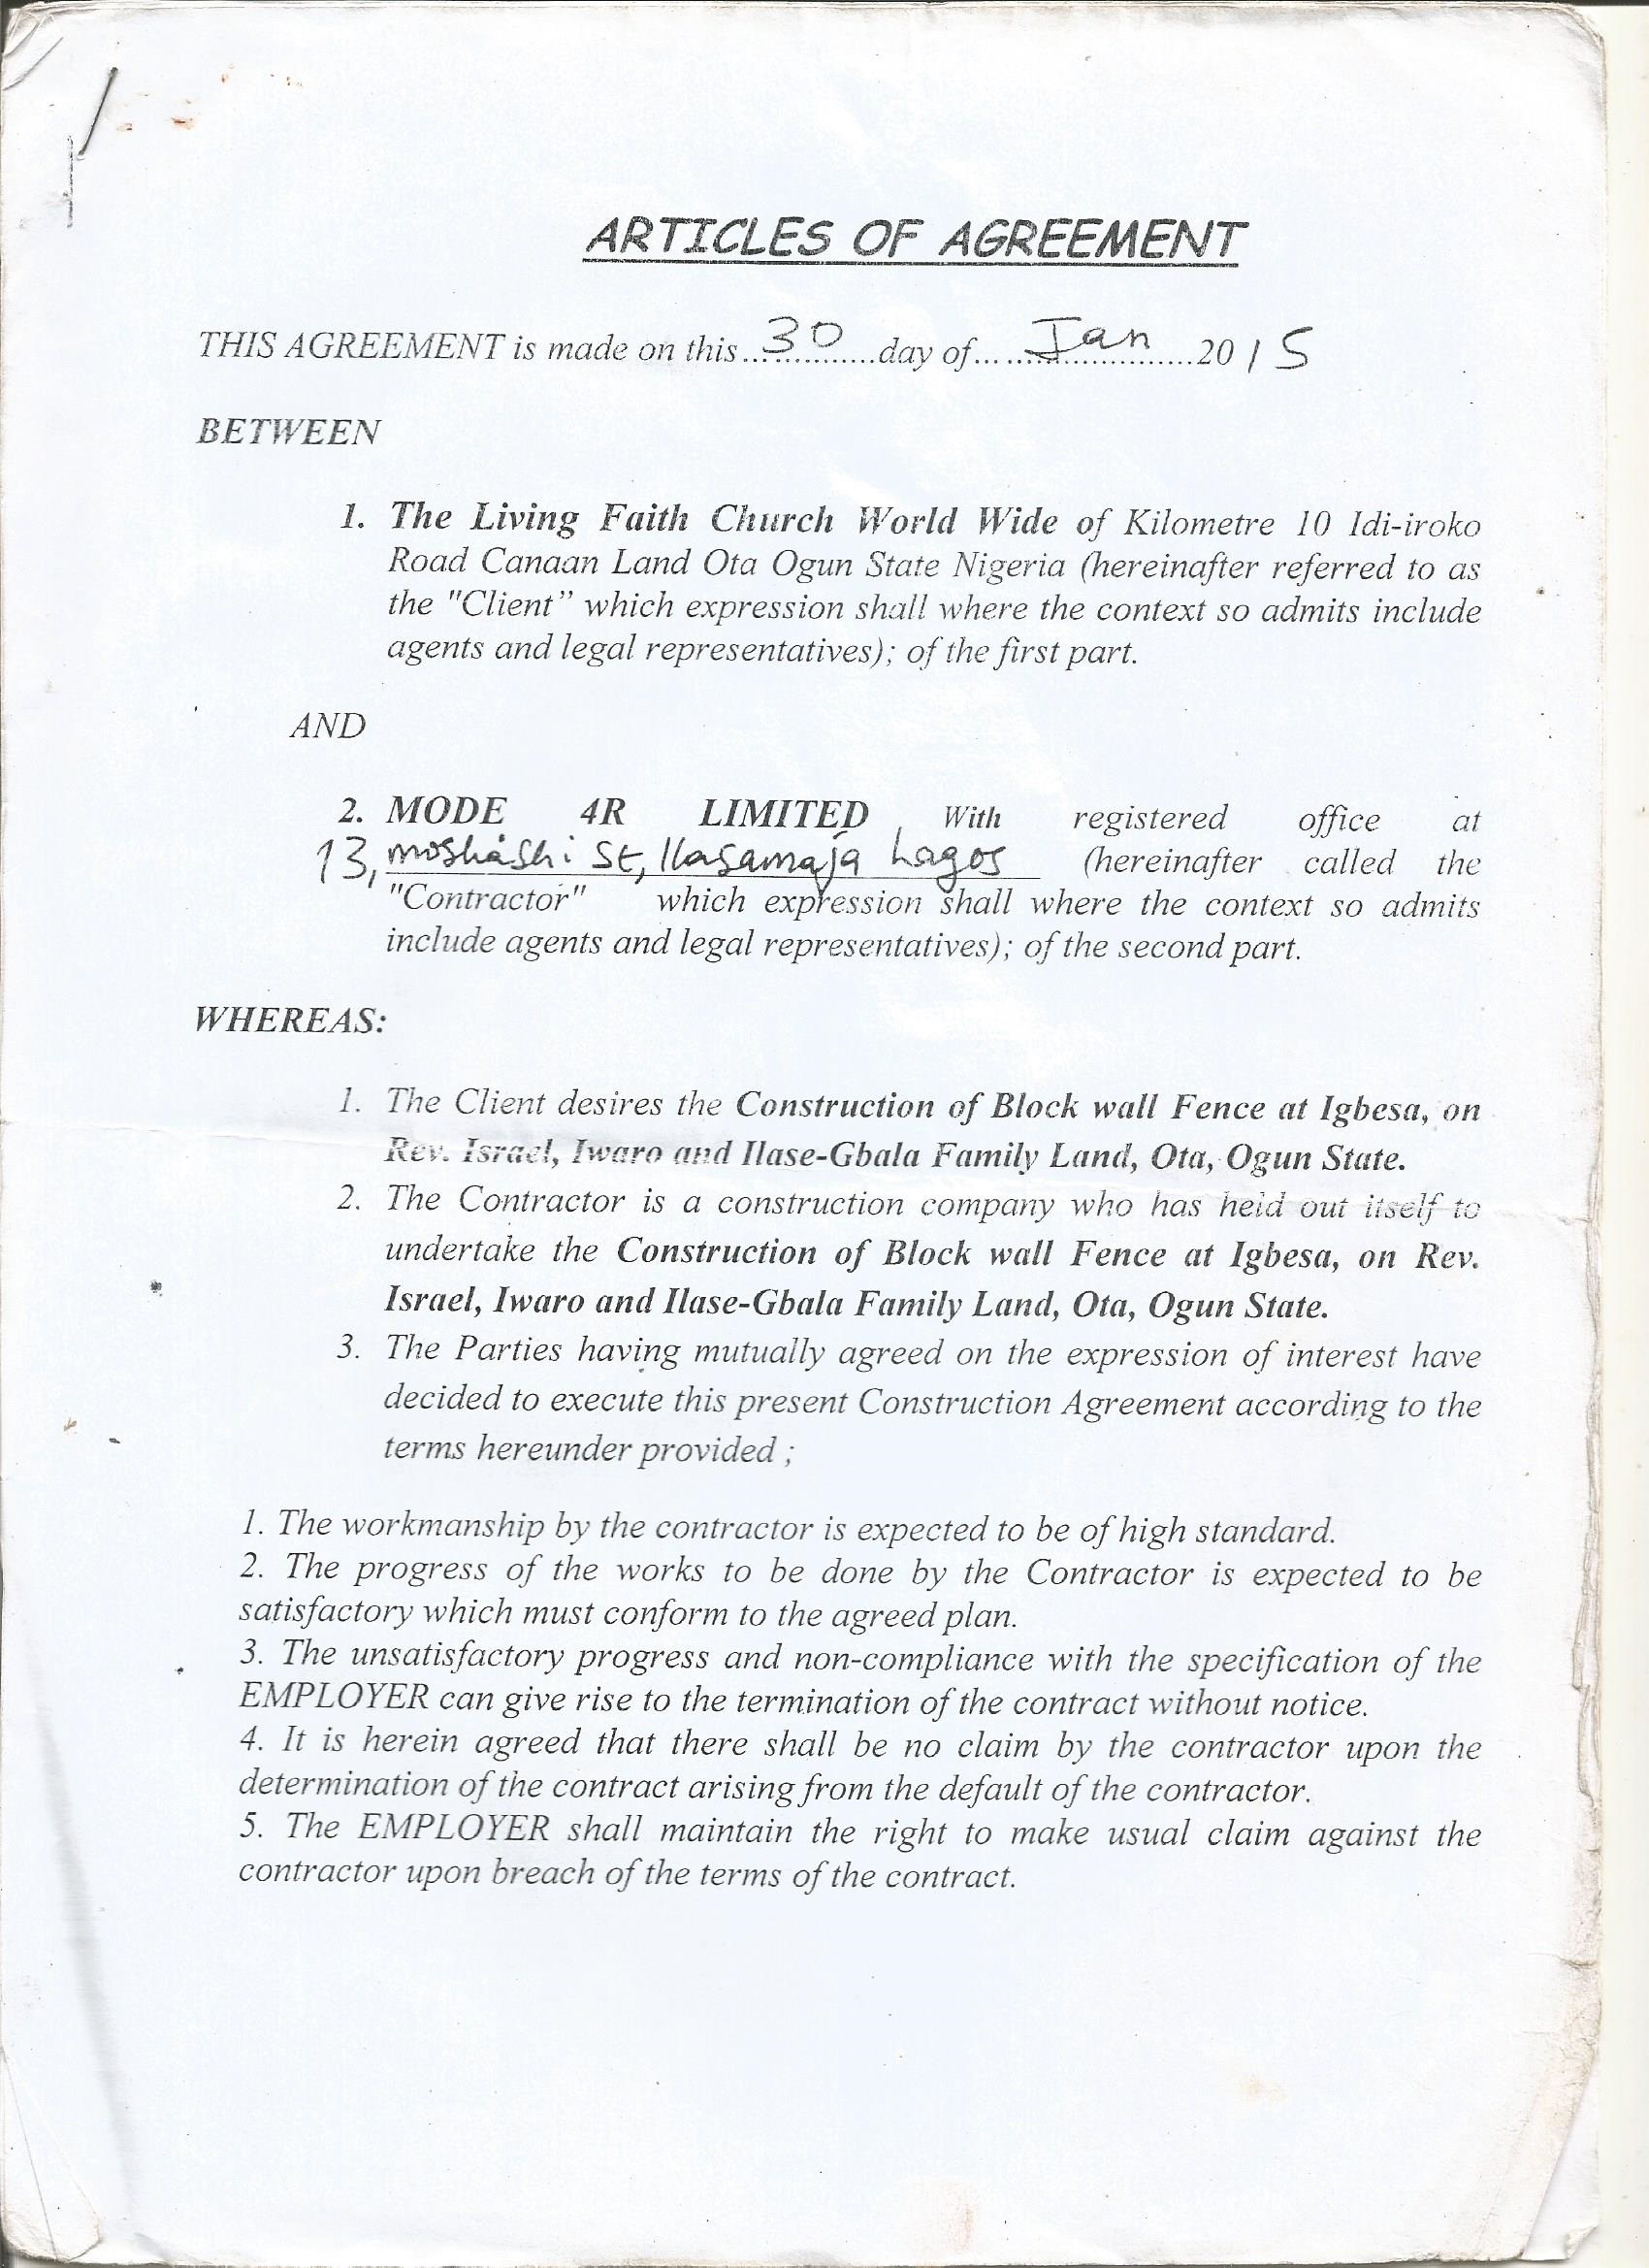 ARTICLES OF AGREEMENT
THIS AGREEMENT is made on this...30...day of...Jan...2015
BETWEEN
1. The Living Faith Church World Wide of Kilometre 10 Idi-iroko
Road Canaan Land Ota Ogun State Nigeria (hereinafter referred to as
the "Client” which expression shall where the context so admits include
agents and legal representatives); of the first part.
AND
2. MODE 4R LIMITED With registered office at
13, moshashi St, Ilasamaja Lagos (hereinafter called the
"Contractor" which expression shall where the context so admits
include agents and legal representatives); of the second part.
WHEREAS:
1. The Client desires the Construction of Block wall Fence at Igbesa, on
Rev. Israel, Iwaro and Ilase-Gbala Family Land, Ota, Ogun State.
2. The Contractor is a construction company who has held out itself to
undertake the Construction of Block wall Fence at Igbesa, on Rev.
Israel, Iwaro and Ilase-Gbala Family Land, Ota, Ogun State.
3. The Parties having mutually agreed on the expression of interest have
decided to execute this present Construction Agreement according to the
terms hereunder provided ;
1. The workmanship by the contractor is expected to be of high standard.
2. The progress of the works to be done by the Contractor is expected to be
satisfactory which must conform to the agreed plan.
3. The unsatisfactory progress and non-compliance with the specification of the
EMPLOYER can give rise to the termination of the contract without notice.
4. It is herein agreed that there shall be no claim by the contractor upon the
determination of the contract arising from the default of the contractor.
5. The EMPLOYER shall maintain the right to make usual claim against the
contractor upon breach of the terms of the contract.